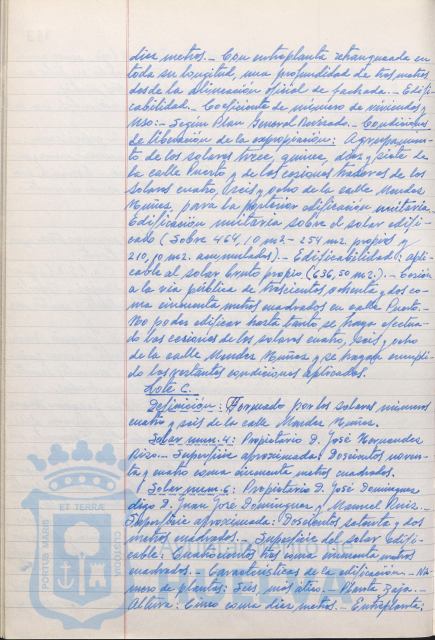 diez metros.- Con entreplanta retranqueada en
toda su longitud, una profundidad de tres metros
desde la alineación oficial de fachada.- Edifi-
cabilidad.- Coeficiente de número de viviendas y
uso:- Según Plan General Revisado.- Condiciones
de liberación de la expropiación: Agrupamien-
to de los solares trece, quince, diez y siete de
la calle Puerto y de las cesiones traseras de los
solares cuatro, seis y ocho de la calle Mendez
Nuñez, para la posterior edificación unitaria.
Edificación unitaria sobre el solar edifi-
cado (Sobre 464,10 m2 - 254 m2. propios y
210,10 m2. acumulados).- Edificabilidad: apli-
cable al solar bruto propio (636,50 m2.).- Cesión
a la vía pública de trescientos ochenta y dos co-
ma cincuenta metros cuadrados en calle Puerto.-
No poder edificar hasta tanto se haga efectua-
do las cesiones de los solares cuatro, seis y ocho
de la calle Mendez Nuñez y se hayan cumpli-
do las restantes condiciones aplicadas.
Lote C.
Definición: Formado por los solares números
cuatro y seis de la calle Mendez Nuñez.
Solar num. 4: Propietario D. José Hernandez
Rizo.- Superficie aproximada: Doscientos noven-
ta y cuatro coma cincuenta metros cuadrados.
Solar num. 6: Propietario D. José Dominguez
digo D. Juan José Dominguez y Manuel Ruiz.-
Superficie aproximada: Doscientos setenta y dos
metros cuadrados.- Superficie del solar Edifi-
cable: Cuatrocientos tres coma cincuenta metros
cuadrados.- Características de la edificación.- Nú-
mero de plantas: Seis, más ático.- Planta Baja.-
Altura: Cinco coma diez metros.- Entreplanta:
PORTUS MARIS ET TERRAE CUSTODIA